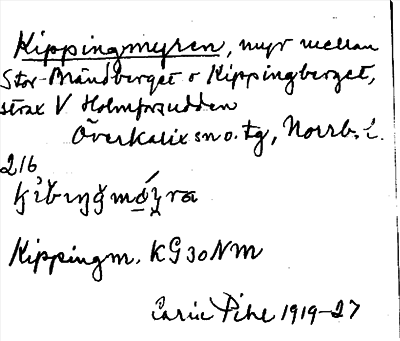 Kippingmyren, myr mellan
Stor-Brändberget o Kippingberget,
strax V Holmforsudden
Överkalix sn o. tg, Norrb. l.
216
Kippingm. KG30NM
Carin Pihl 1919-27